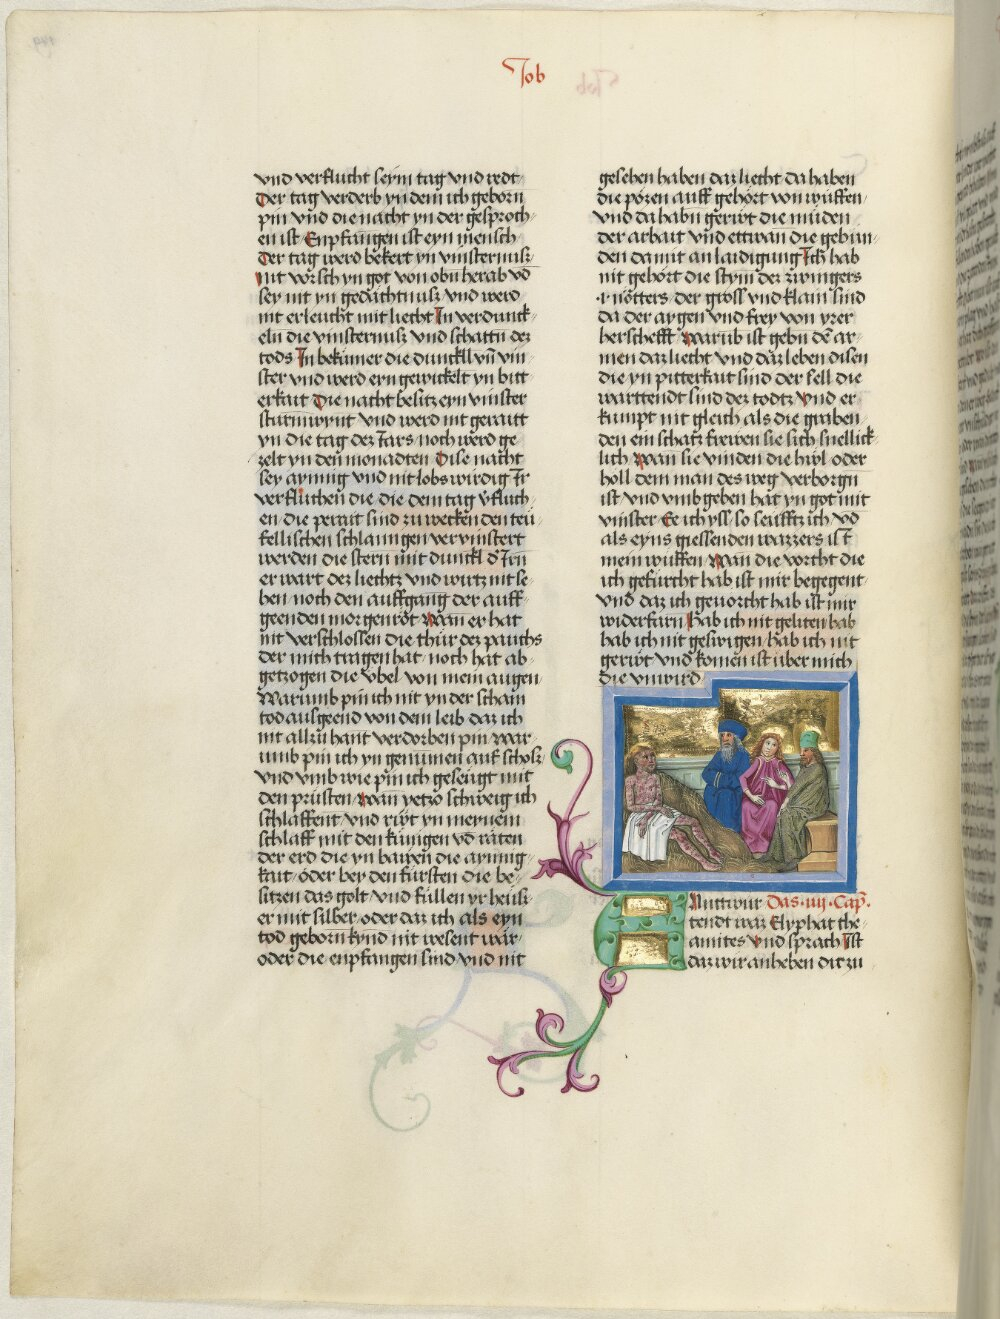 Job
vnd verflucht seynn tag vnd redt
Der tag verderb yn dem ich geborn
pin vnd die nacht yn der gesproch-
en ist Enpfangen ist eyn mensch
Der tag werd bekert yn vinsternuß
nit vorsch yn got von obn herab vō
sey nit yn gedächtnuß vnd werd
nit erleucht mit liecht In verdunck-
eln die vinsternuß vnd schattn dez
tods In bekumer die dunckll vn̄ vin-
ster vnd werd eyngewickelt yn bitt-
erkait Die nacht besitz eyn vinster
sturmwynt vnd werd nit geraitt
yn die tag dez Jars noch werd ge-
zelt yn den monadten Dise nacht
sey aynnig vnd nit lobs wirdig Ir
verfluchen die die dem tag v̄fluch-
en die perait sind zu wecken den teu-
fellischen schlanngen vervinstert
werden die stern mit dunckl d' Irn
er wart dez liechtz vnd wirtz nit se-
hen noch den auffgang der auff-
geenden morgenröt Wan er hat
nit verschlossen die thür dez pauchs
der mich tragen hat noch hat ab-
getzogen die vbel von mein augen
Warumb pin ich nit yn der scham
tod ausgeend von dem leib daz ich
nit allzuhant verdorben pin war-
umb pin ich yn genumen auf schosz
vnd vmb wie pin ich geseugt mit
den prüsten Wan yetzo schweig ich
schlaffent vnd rübt yn meynem
schlaff mit den künigen vō räten
der erd die yn bawen die aynnig-
kait oder bey den fürsten die be-
sitzen das golt vnd füllen yr heüs-
er mit silber oder daz ich als eyn
tod geborn kynd nit wesent wär
oder die enpfangen sind vnd nit
gesehen haben daz liecht da haben
die pözen auff gehört von wüffen
vnd da habn gerübt die müden
der arbait vnd ettwan die gebun-
den da mit an laidigung Ich hab
nit gehört die stym dez zwingers
·r· nötters der gross vnd klain sind
da der aygen vnd frey von yrer
herschefft Warūb ist gebn dē ar-
men daz liecht vnd daz leben disen
die yn pitterkait sind der sell die
warttendt sind dez todtz vnd er
kumpt nit gleich als die graben-
den ein schatz frewen sie sich snellick-
lich Wan sie vinden die hwl oder
höll dem man des weg verborgn
ist vnd vmbgeben hat yn got mit
vinster Ee ich yss so seufftz ich vō
als eyns giessenden wazzers ist
mein wuffen Wan die vorcht die
ich gefürcht hab ist mir begegent
vnd daz ich gevorcht hab ist mir
widerfarn Hab ich nit geliten hab
hab ich nit geswigen hab ich nit
gerübt vnd komen ist über mich
die vnwird
Anttwur Das ·iiij· Cap̄.
tendt waz Elyphat the-
amites vnd sprach Ist
daz wir anheben dir zu